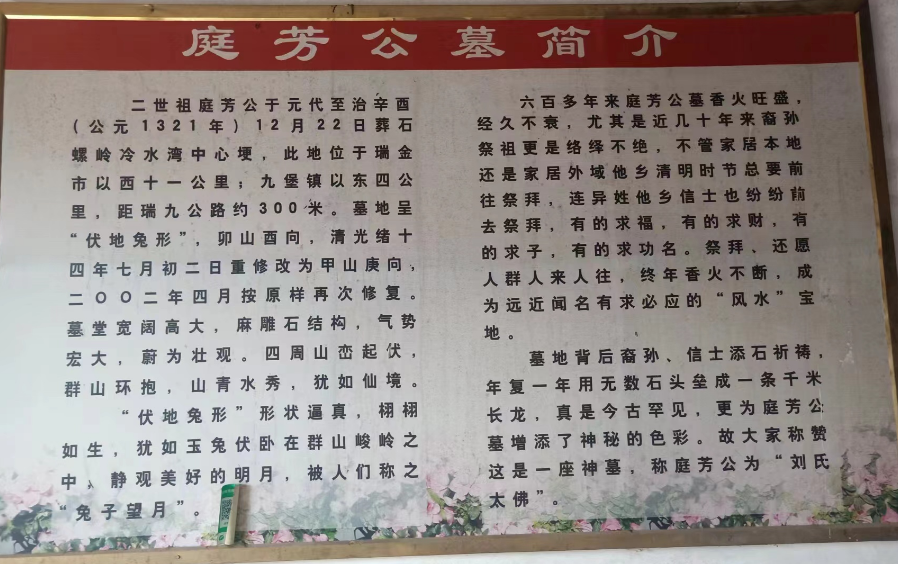 庭芳公墓简介
二世祖庭芳公于元代至治辛酉
(公元1321年)12月22日葬石
螺岭冷水湾中心埂，此地位于瑞金
市以西十一公里；九堡镇以东四公
里，距瑞九公路约300米。墓地呈
“伏地兔形”，卯山酉向，清光绪十
四年七月初二日重修改为甲山庚向，
二〇〇二年四月按原样再次修复。
墓堂宽阔高大，麻雕石结构，气势
宏大，蔚为壮观。四周山峦起伏，
群山环抱，山青水秀，犹如仙境。
“伏地兔形”形状逼真，栩栩
如生，犹如玉兔伏卧在群山峻岭之
中，静观美好的明月，被人们称之
“兔子望月”。
六百多年来庭芳公墓香火旺盛，
经久不衰，尤其是近几十年来裔孙
祭祖更是络绎不绝，不管家居本地
还是家居外域他乡清明时节总要前
往祭拜，连异姓他乡信士也纷纷前
去祭拜，有的求福，有的求财，有
的求子，有的求功名。祭拜、还愿
人群人来人往，终年香火不断，成
为远近闻名有求必应的“风水”宝
地。
墓地背后裔孙、信士添石祈祷，
年复一年用无数石头垒成一条千米
长龙，真是今古罕见，更为庭芳公
墓增添了神秘的色彩。故大家称赞
这是一座神墓，称庭芳公为“刘氏
太佛”。